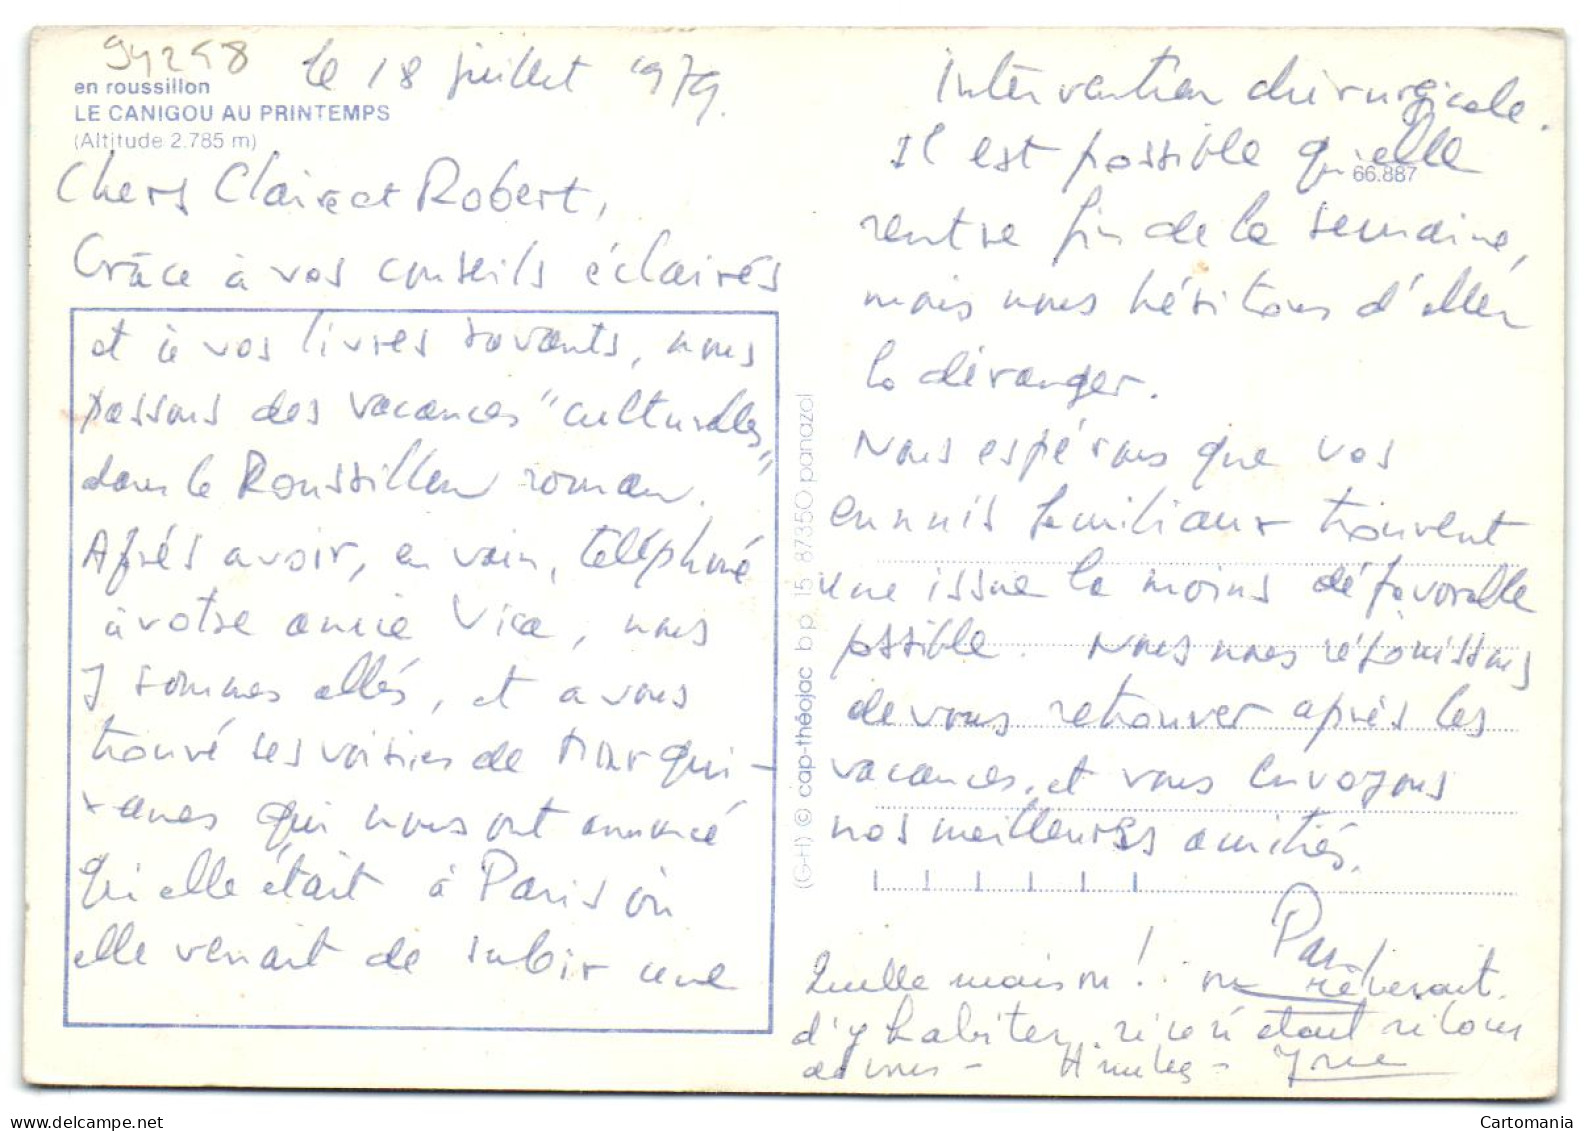 94258
le 18 juillet 1979.
en roussillon
LE CANIGOU AU PRINTEMPS
(Altitude 2.785 m)
Chers Claire et Robert,
Grâce à vos conseils éclairés
et à vos livres savants, nous
passons des vacances "culturelles"
dans le Roussillon roman.
Après avoir, en vain, téléphoné
à votre amie Vica, nous
y sommes allés, et avons
trouvé ses voisins de Marqui-
xanes qui nous ont annoncé
qu'elle était à Paris où
elle venait de subir une
(G-H) © cap-théojac b.p. 15 87350 panazol
Intervention chirurgicale.
Il est possible qu'elle
66.887
rentre fin de la semaine,
mais nous hésitons d'aller
la déranger.
Nous espérons que vos
ennuis familiaux trouvent
une issue la moins défavorable
possible. Nous nous réjouissons
de vous retrouver après les
vacances, et vous envoyons
nos meilleures amitiés.
Paul
Quelle maison ! on rêverait
d'y habiter, si ce n'était si loin
de vous -
Cartomania